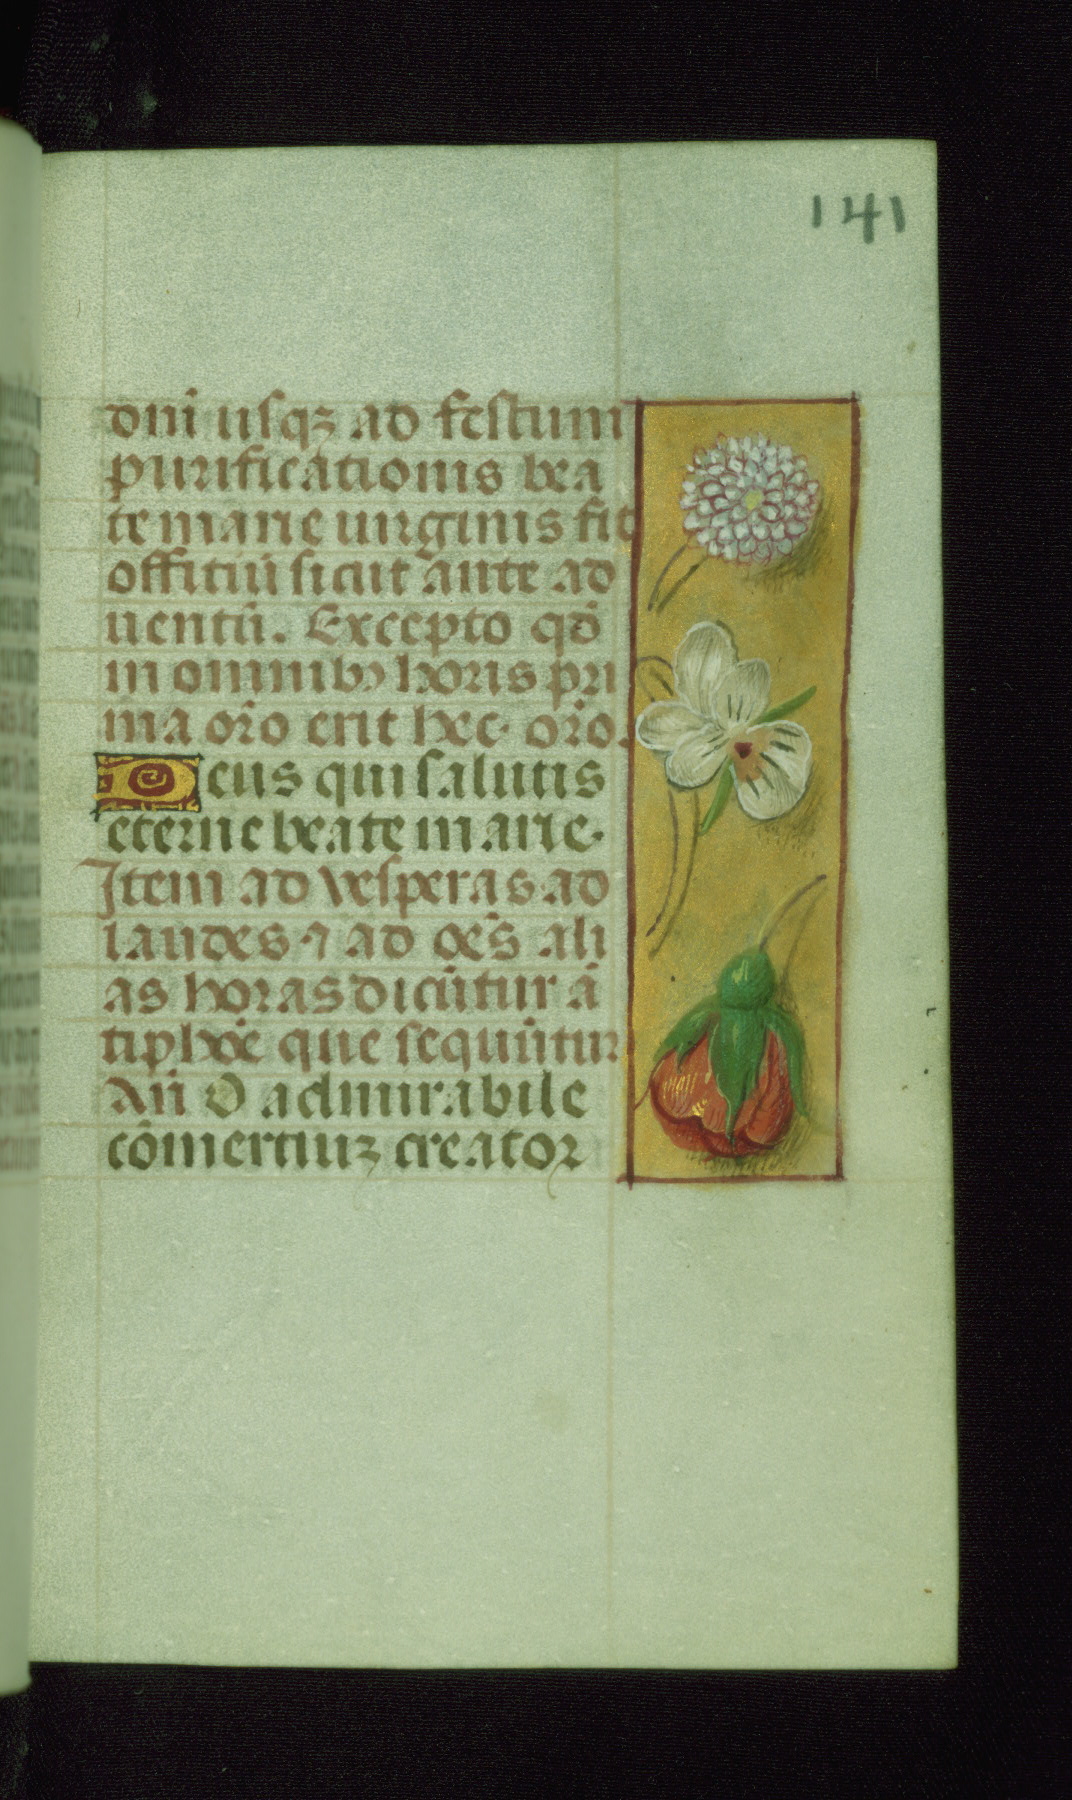 141
dnī usqꝫ ad festum
purificationis bea
te marie uirginis fit
offitiū sicut ante ad
uentū. Excepto qď
in omnibꝰ horis pri
ma orō erit hec. orō.
Deus qui salutis
eterne beate marie.
Item ad vesperas ad
laudes ⁊ ad oēs ali
as horas dicūtur ā
tiphōe que sequūtur
Añ O admirabile
cōmertiuꝫ creator